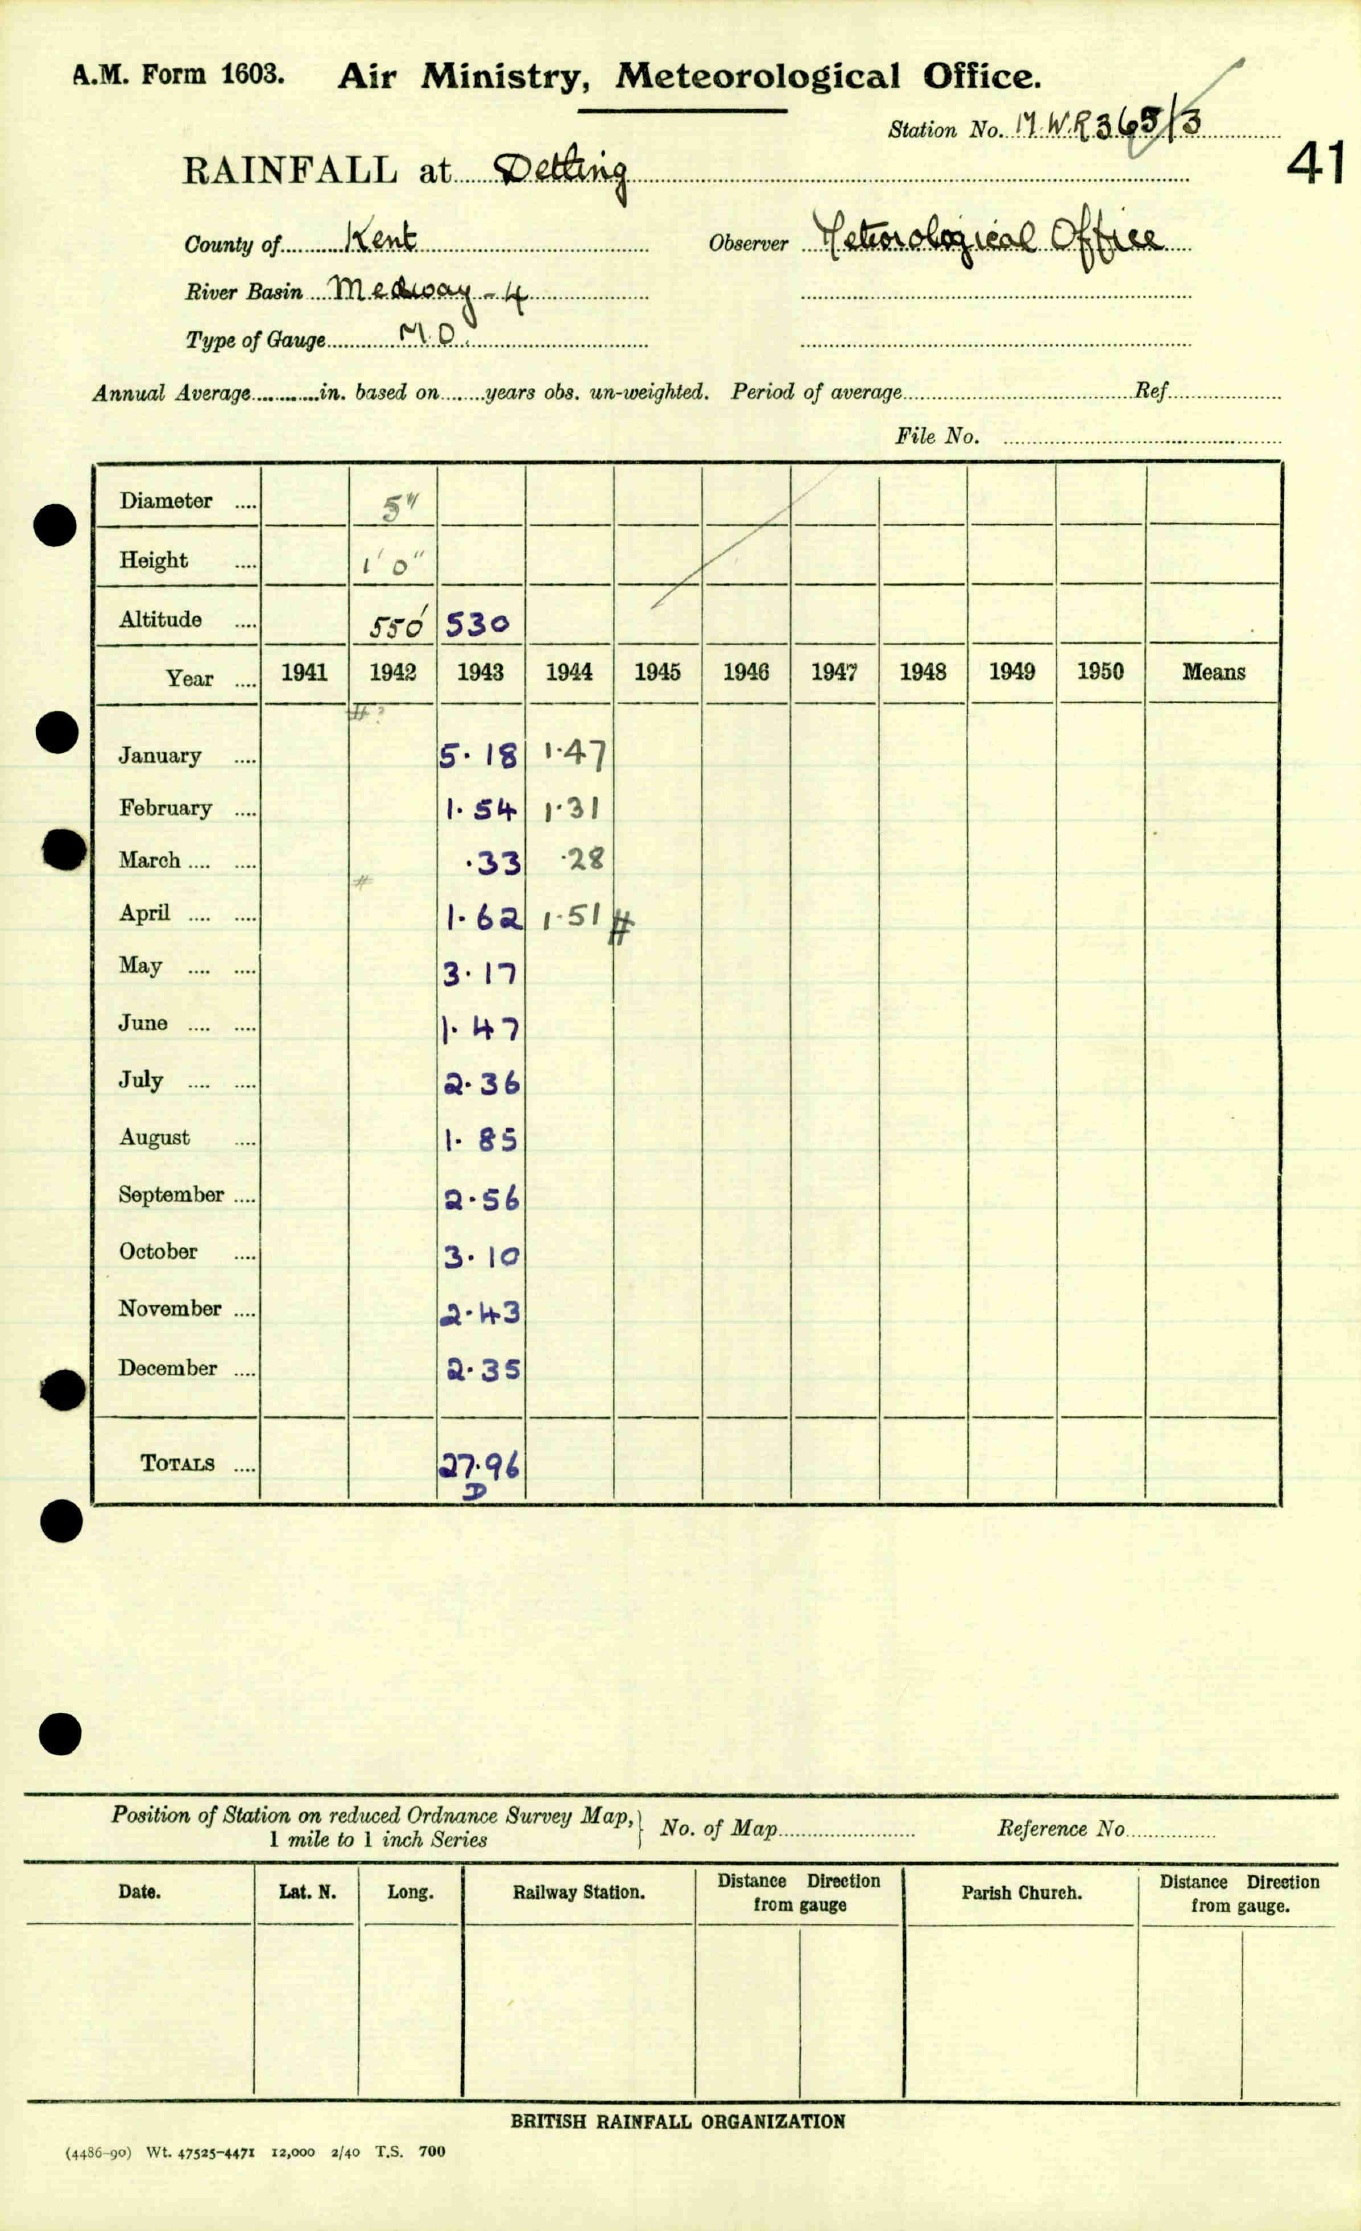 A.M. Form 1603. Air Ministry, Meteorological Office.
Station No. M.W.R 365/3
41
RAINFALL at Detling
County of Kent Observer Meteorological Office
River Basin Medway - 4
Type of Gauge M.O.
Annual Average in. based on years obs. un-weighted. Period of average Ref
File No.
Diameter .... 5"
Height .... 1' 0"
Altitude .... 550' 530
Year .... 1941 1942 1943 1944 1945 1946 1947 1948 1949 1950 Means
# ?
January .... 5.18 1.47
February .... 1.54 1.31
March .... .... .33 .28
#
April .... .... 1.62 1.51 #
May .... .... 3.17
June .... .... 1.47
July .... .... 2.36
August .... 1.85
September .... 2.56
October .... 3.10
November .... 2.43
December .... 2.35
TOTALS .... 27.96
D
Position of Station on reduced Ordnance Survey Map, } No. of Map Reference No
1 mile to 1 inch Series
Date. Lat. N. Long. Railway Station. Distance Direction from gauge Parish Church. Distance Direction from gauge.
BRITISH RAINFALL ORGANIZATION
(4486-90) Wt. 47525-4471 12,000 2/40 T.S. 700